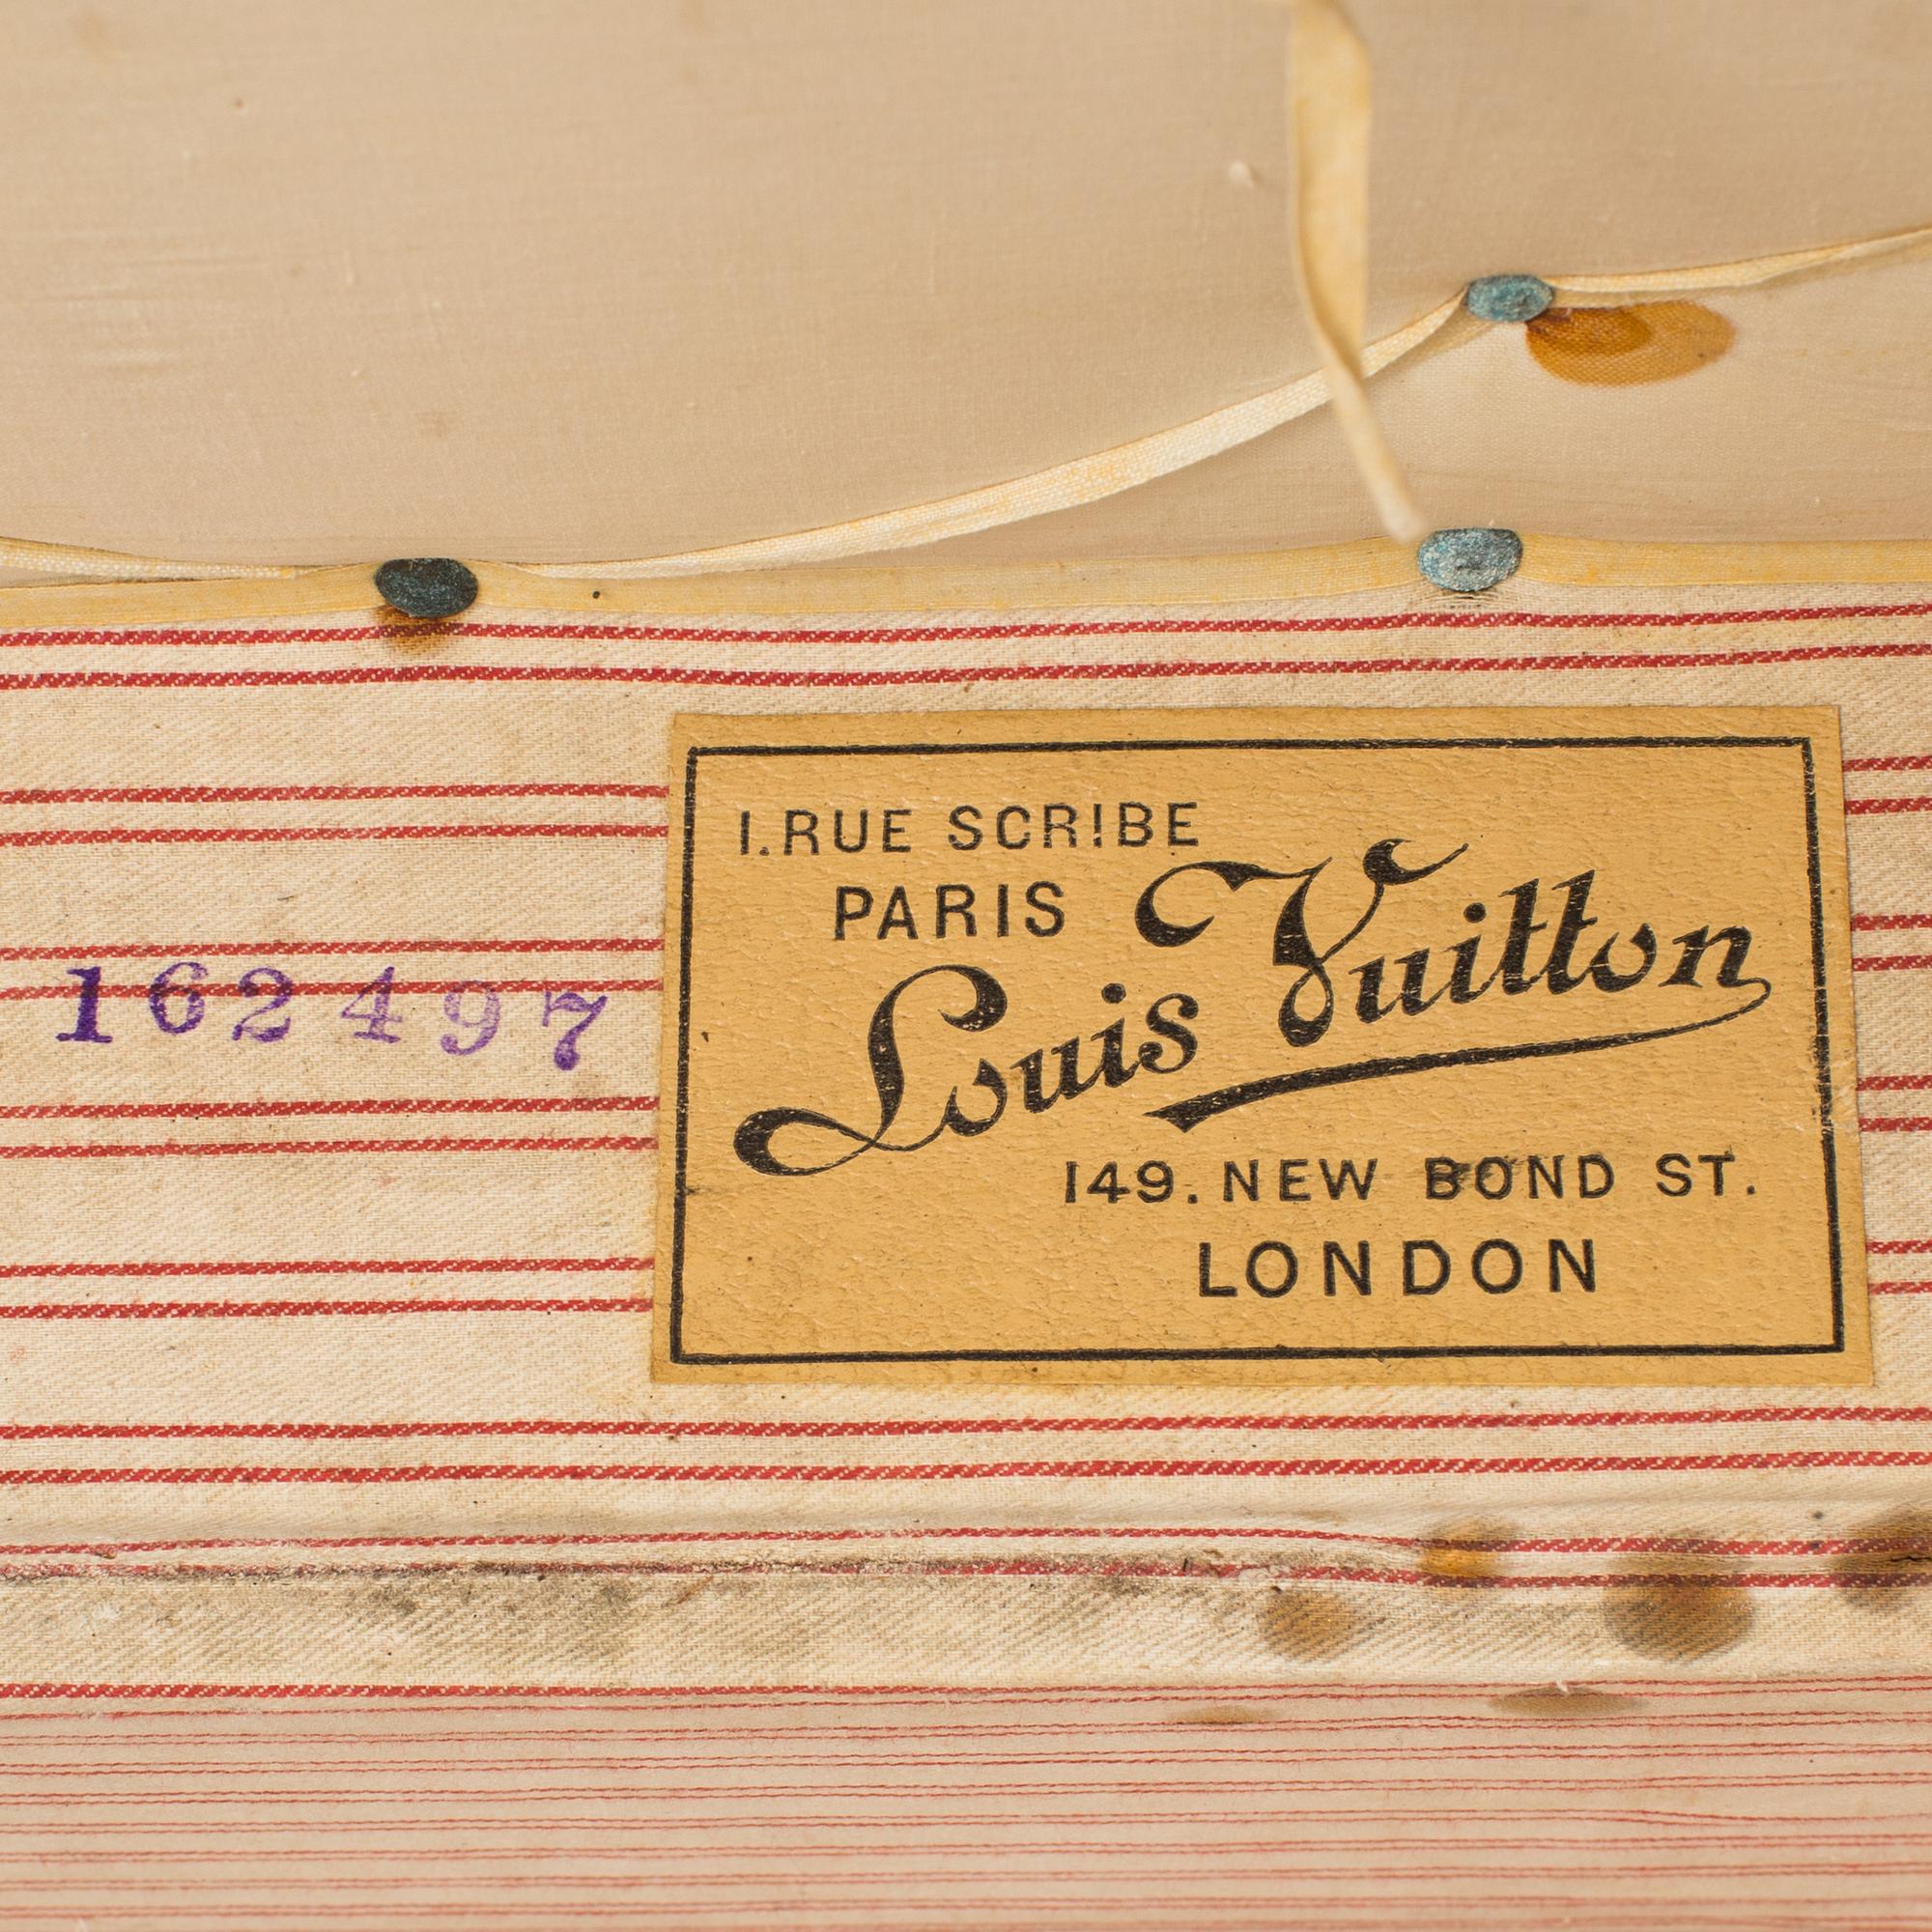 1. RUE SCRIBE
PARIS
Louis Vuitton
149. NEW BOND ST.
LONDON
162497